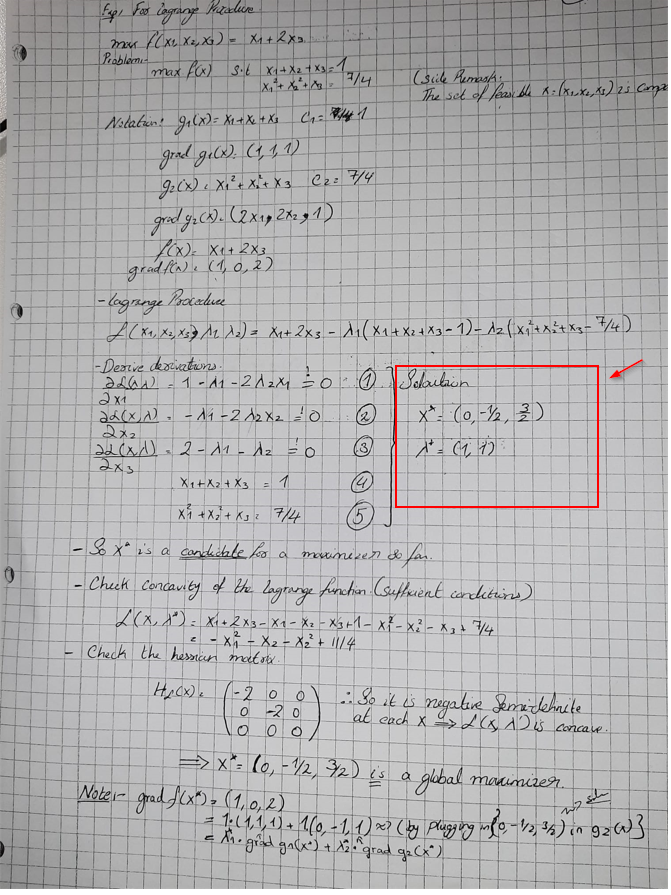 Exp, For Lagrange Procedure
max f(x₁, x₂, x₃) = x₁ + 2x₃
Problem:-
max f(x) s.t x₁ + x₂ + x₃ = 1
x₁² + x₂² + x₃ = 7/4
(Side Remark:
The set of feasible x = (x₁, x₂, x₃) is compa
Notation: g₁(x) = x₁ + x₂ + x₃ C₁ = 1
grad g₁(x) = (1, 1, 1)
g₂(x) = x₁² + x₂² + x₃ C₂ = 7/4
grad g₂(x) = (2x₁, 2x₂, 1)
f(x) = x₁ + 2x₃
grad f(x) = (1, 0, 2)
- Lagrange Procedure
L(x₁, x₂, x₃, λ₁, λ₂) = x₁ + 2x₃ - λ₁(x₁ + x₂ + x₃ - 1) - λ₂(x₁² + x₂² + x₃ - 7/4)
- Derive derivations.
∂L(x,λ)/∂x₁ = 1 - λ₁ - 2λ₂x₁ =! 0 ①
∂L(x,λ)/∂x₂ = -λ₁ - 2λ₂x₂ =! 0 ②
∂L(x,λ)/∂x₃ = 2 - λ₁ - λ₂ =! 0 ③
x₁ + x₂ + x₃ = 1 ④
x₁² + x₂² + x₃ = 7/4 ⑤
Solution
x* = (0, -1/2, 3/2)
λ* = (1, 1)
- So x* is a candidate for a maximizer so far.
- Check concavity of the Lagrange function (sufficient conditions)
L(x, λ*) = x₁ + 2x₃ - x₁ - x₂ - x₃ + 1 - x₁² - x₂² - x₃ + 7/4
= -x₁² - x₂ - x₂² + 11/4
- Check the hessian matrix.
H_L(x) = (-2 0 0
0 -2 0
0 0 0)
∴ So it is negative Semidefinite
at each x ⟹ L(x, λ*) is concave.
⟹ x* = (0, -1/2, 3/2) is a global maximizer.
Note:- grad f(x*) = (1, 0, 2)
= 1·(1, 1, 1) + 1(0, -1, 1) ~> (by plugging in {0, -1/2, 3/2} in g₂(x))
= λ₁* · grad g₁(x*) + λ₂* · grad g₂(x*)